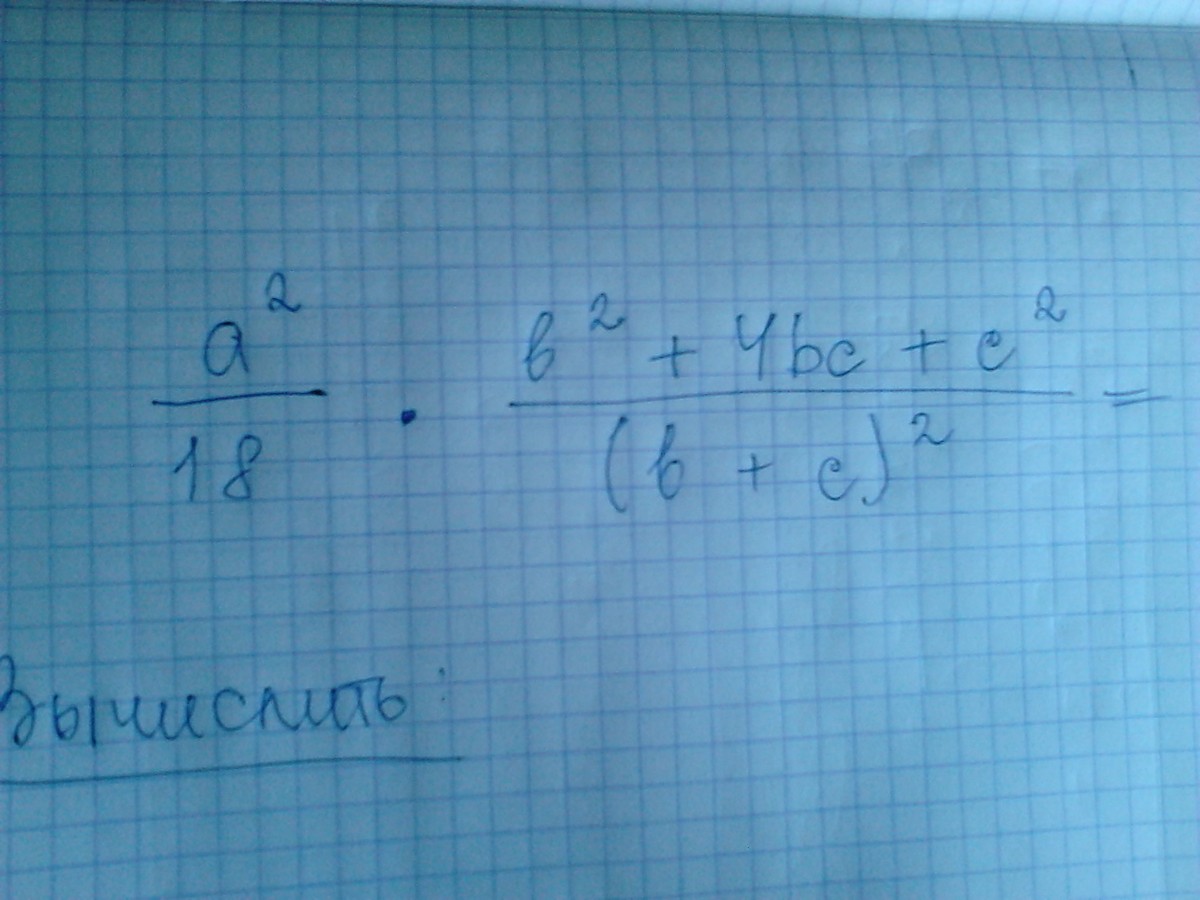 a² / 18 · (b² + 4bc + c²) / (b + c)² =
Вычислить: